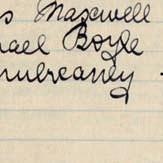 s Maxwell
hael Boyle
mulreaney